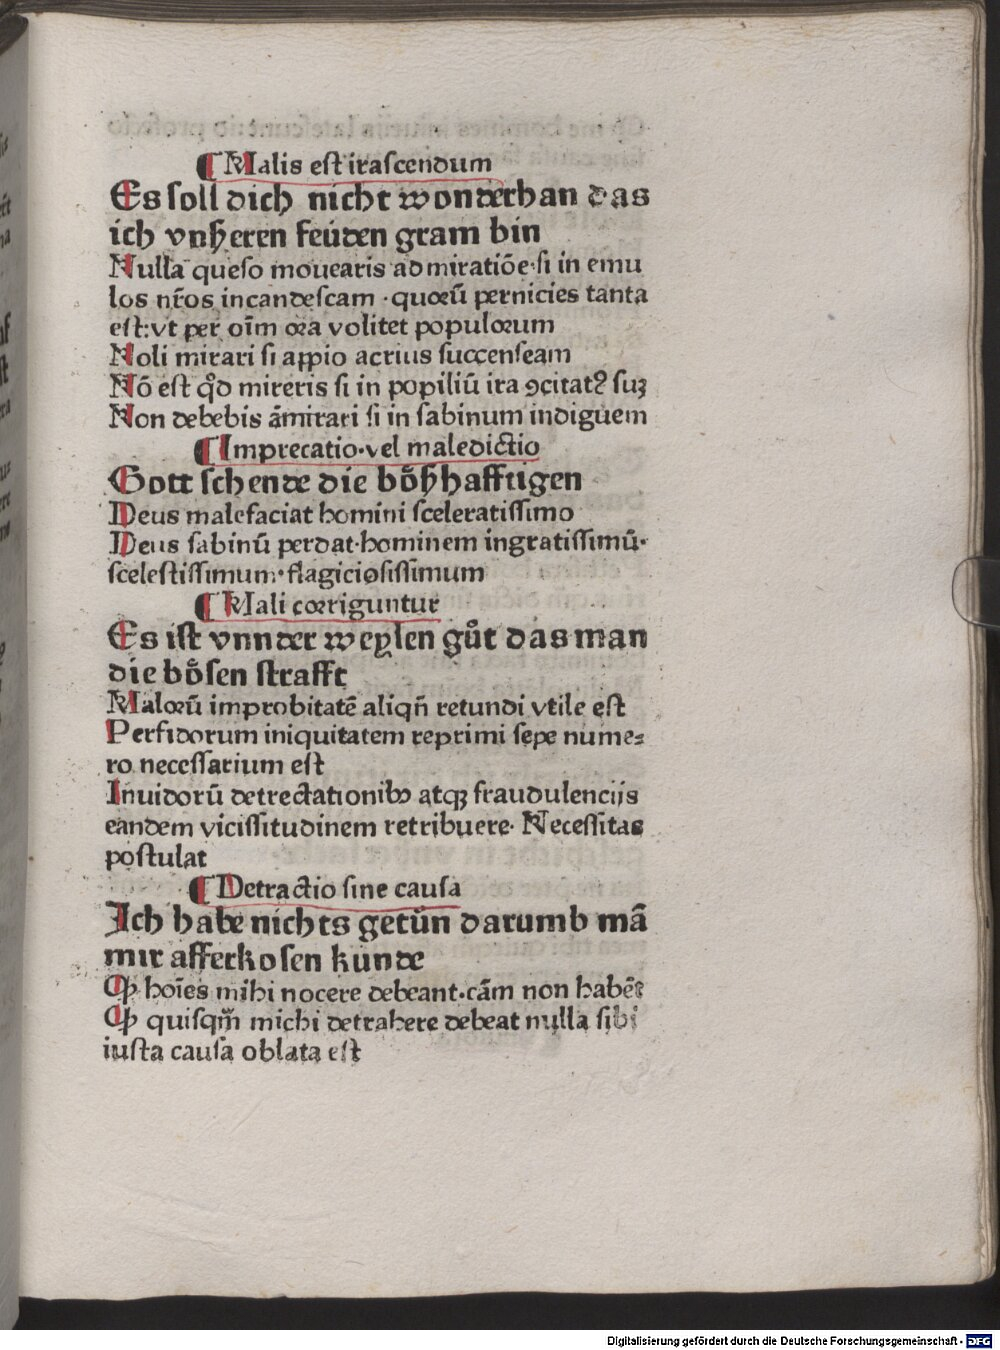 ¶ Malis est irascendum
Es soll dich nicht wonderhan das
ich vnßeren feúden gram bin
Nulla queso mouearis admiratiōe·si in emu
los nr̄os incandescam ·quorū pernicies tanta
est:vt per oīm ora volitet populorum
Noli mirari si appio acrius succenseam
Nō est qd̛ mireris si in popiliū ira ꝯcitatꝰ suꝫ
Non debebis āmirari si in sabinum indiguem
¶ Imprecatio·vel maledictio
Gott schende die boͤßhafftigen
Deus malefaciat homini sceleratissimo
Deus sabinū perdat·hominem ingratissimū·
scelestissimum·flagiciosissimum
¶ Mali corriguntur
Es ist vnnder weylen guͦt das man
die boͤsen strafft
Malorū improbitatē aliqn̄ retundi vtile est
Perfidorum iniquitatem reprimi sepe nume⸗
ro necessarium est
Inuidorū detrectationibꝰ atqꝫ fraudulencijs
eandem vicissitudinem retribuere· Necessitas
postulat
¶ Detractio sine causa
Ich habe nichts getün darumb mā
mir afferkosen kunde
Ꝙ hoīes mihi nocere debeant·cām non habēt
Ꝙ quisqm̄ michi detrahere debeat nulla sibi
iusta causa oblata est
Digitalisierung gefördert durch die Deutsche Forschungsgemeinschaft - DFG